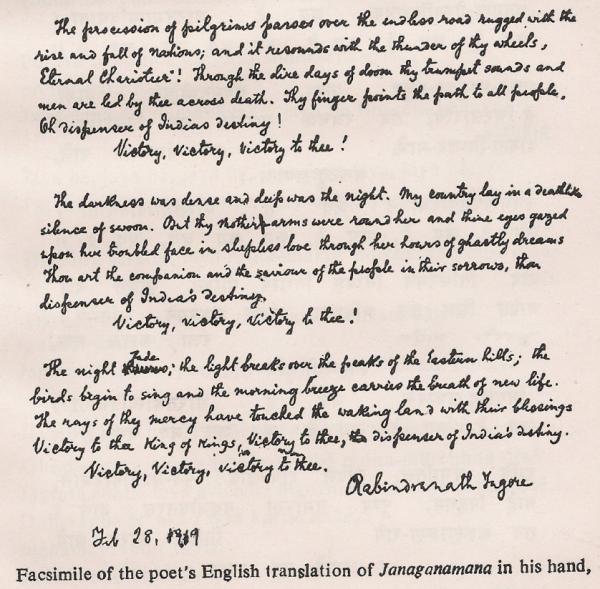 The procession of pilgrims passes over the endless road rugged with the
rise and fall of nations; and it resounds with the thunder of thy wheels,
Eternal Charioteer! Through the dire days of doom thy trumpet sounds and
men are led by thee across death. Thy finger points the path to all people,
Oh dispenser of India's destiny!
Victory, Victory, Victory to thee!
The darkness was dense and deep was the night. My country lay in a deathlike
silence of swoon. But thy Mother arms were round her and thine eyes gazed
upon her troubled face in sleepless love through her hours of ghastly dreams
Thou art the companion and the saviour of the people in their sorrows, thou
dispenser of India's destiny,
Victory, victory, Victory to thee!
The night fade; the light breaks over the peaks of the Eastern hills; the
birds begin to sing and the morning breeze carries the breath of new life.
The rays of thy mercy have touched the waking land with their blessings
Victory to thee King of Kings, Victory to thee, dispenser of India's destiny.
Victory, Victory, victory to thee.
Rabindranath Tagore
Feb 28, 1919
Facsimile of the poet's English translation of Janaganamana in his hand,